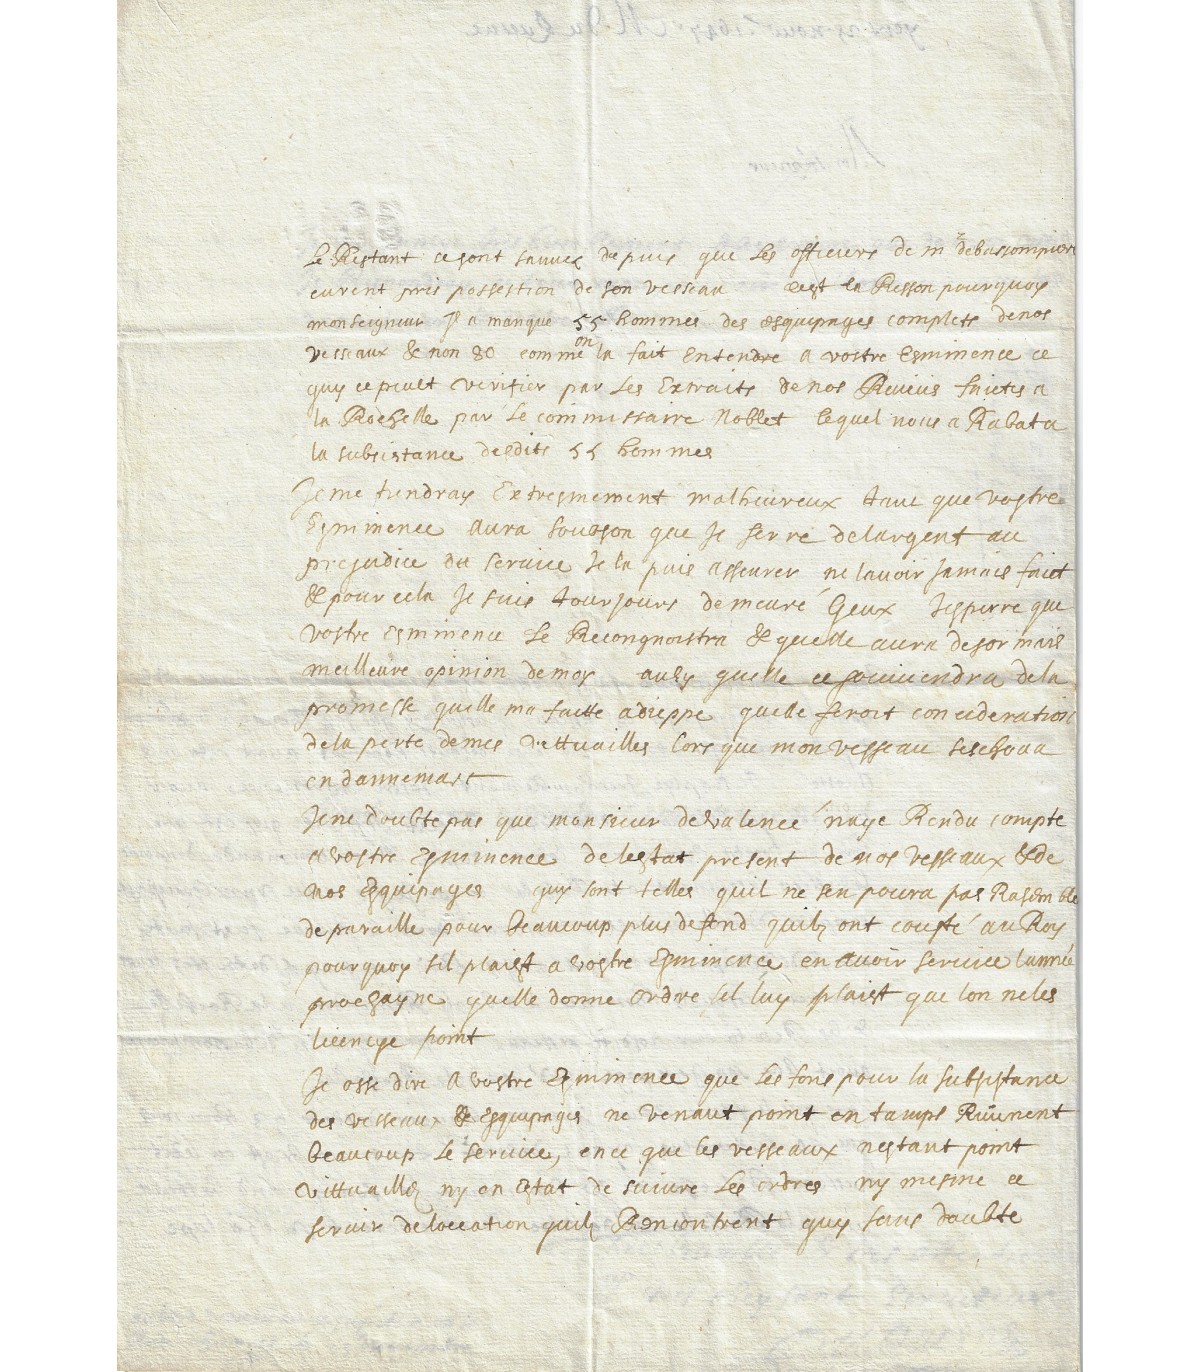 Le Restant ce sont sauvez depuis que les officiers de mr debassompiere
eurent pris possestion de son vesseau cest la Resson pourquoy
monseigneur Jl a manque 55 hommes des esquipages complets denos
vesseaux & non 80 comme on la fait Entendre a vostre Esminence ce
quy ce peult verifier par les Extraits denos Reveues faictes a
la Rochelle par le commissaire Noblet lequel nous a Rabatu
la subsistance desdits 55 hommes
Je me tiendray Extresmement malheureux tant que vostre
Esminence aura soubson que Je serre delargent au
prejudice du service Je la puis asseurer ne lavoir Jamais faict
& pour cela Je suis tourjours demeuré Geux Jesperre que
vostre Esminence le Recongnoistra & quelle aura desormais
meilleure opinion demoy ausy quelle ce souviendra dela
promesse quelle ma faitte adieppe quelle feroit concideration
dela perte demes vettuailles lors que mon vesseau seschoua
en dannemarc
Je ne doubte pas que monsieur devalencé naye Rendu compte
a vostre Esminence delestat present de nos vesseaux & de
nos Esquipages quy sont telles quil ne sen poura pas Rasembler
de paraille pour beaucoup plus de fond quilz ont cousté au Roy
pourquoy sil plaist a vostre Esminence en avoir service lannée
prochayne quelle donne ordre sil luy plaist que lon ne les
licencye point
Je osse dire a vostre Esminence que les fons pour la subsistance
des vesseaux & esquipages ne venant point en tamps Ruinent
beaucoup le service, en ce que les vesseaux nestant point
vittuaillez ny en Estat de suivre les ordres ny mesme ce
servir deloccation quilz Rencontrent quy sans doubte